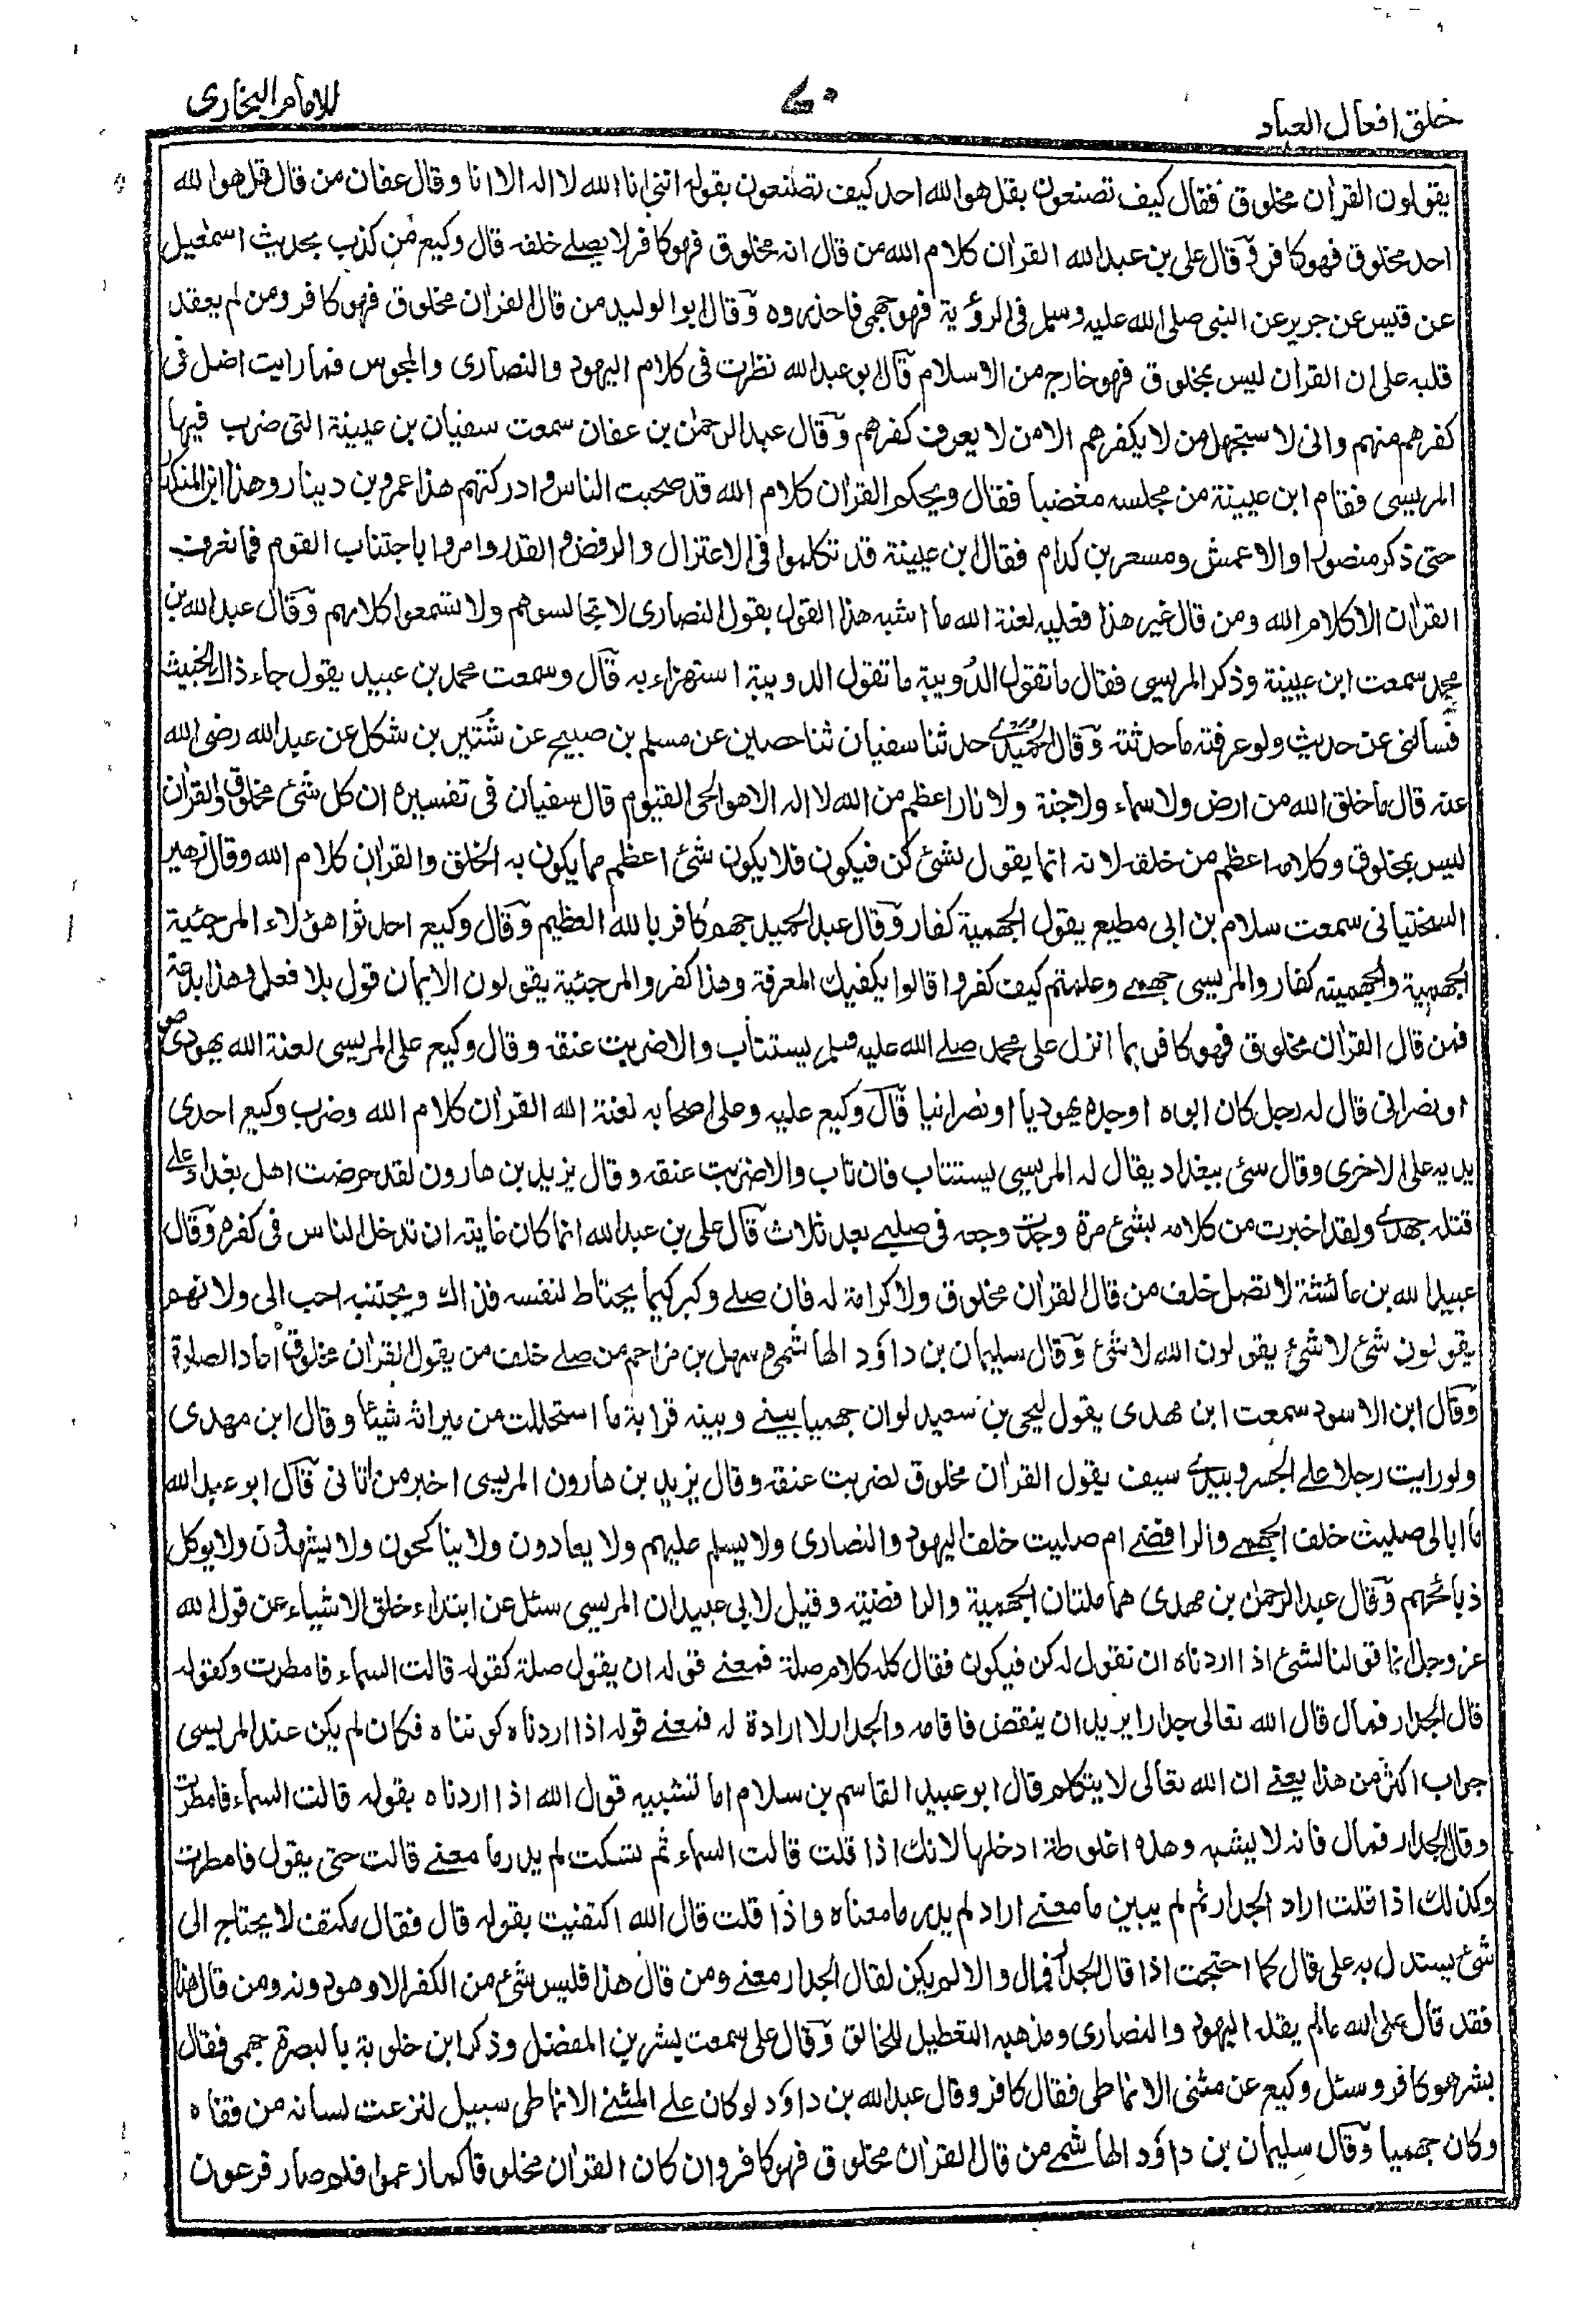 خلق افعال العباد
٧٠
للامام البخاری
يقولون القراٰن مخلوق فقال كيف تصنعون بقل هو الله احد كيف تصنعون بقوله اننی انا الله لا اله الا انا وقال عفان من قال قل هو الله
احد مخلوق فهو كافر وقال علی بن عبد الله القراٰن كلام الله من قال انه مخلوق فهو كافر لا يصلے خلفه قال وكيع من كذب بحديث اسمٰعيل
عن قيس عن جرير عن النبی صلی الله عليه وسلم فی الرؤية فهو جهمی فاحذروه وقال ابو الوليد من قال القراٰن مخلوق فهو كافر ومن لم يعقد
قلبه علی ان القراٰن ليس بمخلوق فهو خارج من الاسلام قال ابو عبد الله نظرت فی كلام اليهود والنصاری والمجوس فما رايت اضل فی
كفرهم منهم وانی لاستجهل من لا يكفرهم الا من لا يعرف كفرهم وقال عبد الرحمٰن بن عفان سمعت سفيان بن عيينة التی ضرب فيها
المريسی فقام ابن عيينة من مجلسه مغضبا فقال ويحكم القراٰن كلام الله قد صحبت الناس وادركتهم هذا عمرو بن دينار وهذا ابن المنكدر
حتی ذكر منصورا والاعمش ومسعر بن كدام فقال ابن عيينة قد تكلموا فی الاعتزال والرفض والقدر وامروا باجتناب القوم فما نعرف
القراٰن الا كلام الله ومن قال غير هذا فعليه لعنة الله ما اشبه هذا القول بقول النصاری لا تجالسوهم ولا تسمعوا كلامهم وقال عبد الله بن
محمد سمعت ابن عيينة وذكر المريسی فقال ما تقول الدويبة ما تقول الدويبة استهزاء به قال وسمعت محمد بن عبيد يقول جاء ذاك الخبيث
فسالنی عن حديث ولو عرفته ما حدثته وقال الحميدے حدثنا سفيان ثنا حصين عن مسلم بن صبيح عن شُتَير بن شكل عن عبد الله رضی الله
عنه قال ما خلق الله من ارض ولا سماء ولا جنة ولا نار اعظم من الله لا اله الا هو الحی القيوم قال سفيان فی تفسيره ان كل شئ مخلوق والقراٰن
ليس بمخلوق وكلامه اعظم من خلقه لانه انما يقول لشئ كن فيكون فلا يكون شئ اعظم مما يكون به الخلق والقراٰن كلام الله وقال زهير
السختيانی سمعت سلام بن ابی مطيع يقول الجهمية كفار وقال عبد الحميد جهم كافر بالله العظيم وقال وكيع احدثوا هؤلاء المرجئية
الجهمية والجهمية كفار والمريسی جهمے وعلمتم كيف كفروا قالوا يكفيك المعرفة وهذا كفر والمرجئية يقولون الايمان قول بلا فعل وهذا بدعة
فمن قال القراٰن مخلوق فهو كافر بما انزل علی محمد صلے الله عليه وسلم يستتاب والا ضربت عنقه وقال وكيع علی المريسی لعنة الله يهودی هو
او نصرانی قال له رجل كان ابوه او جده يهوديا او نصرانيا قال وكيع عليه وعلی اصحابه لعنة الله القراٰن كلام الله وضرب وكيع احدی
يديه علی الاخری وقال سئ ببغداد يقال له المريسی يستتاب فان تاب والا ضربت عنقه وقال يزيد بن هارون لقد حرضت اهل بغداد علے
قتله جهدے ولقد اخبرت من كلامه بشئ مرة وجدت وجعه فی صلبے بعد ثلاث قال علی بن عبد الله انما كان غايته ان تدخل الناس فی كفره وقال
عبيد الله بن عائشة لا تصل خلف من قال القراٰن مخلوق ولا كرامة له فان صلے وكبر كيما يحتاط لنفسه فذاك ويجتنبه احب الی ولانهم
يقولون شئ لا شئ يقولون الله لا شئ وقال سليمان بن داؤد الهاشمی وسهل بن مزاحم من صلے خلف من يقول القراٰن مخلوق اعاد الصلوة
وقال ابن الاسود سمعت ابن مهدی يقول ليحی بن سعيد لو ان جهميا بينے وبينه قرابة ما استحللت من ميراثه شيئا وقال ابن مهدی
ولو رايت رجلا علے الجسر وبيدے سيف يقول القراٰن مخلوق لضربت عنقه وقال يزيد بن هارون المريسی اخبر من اتانی قال ابو عبد الله
ما ابالی صليت خلف الجهمے والرافضے ام صليت خلف اليهود والنصاری ولا يسلم عليهم ولا يعادون ولا يناكحون ولا يشهدون ولا يوكل
ذبائحهم وقال عبد الرحمٰن بن مهدی هما ملتان الجهمية والرافضية وقيل لابی عبيد ان المريسی سئل عن ابتداء خلق الاشياء عن قول الله
عز وجل انما قولنا لشئ اذا اردناه ان نقول له كن فيكون فقال كله كلام صلة فمعنے قوله ان يقول صلة كقوله قالت السماء فامطرت وكقوله
قال الجدار فمال قال الله تعالی جدارا يريد ان ينقض فاقامه والجدار لا ارادة له فمعنے قوله اذا اردناه كوناه فكان لم يكن عند المريسی
جواب اكثر من هذا يعنے ان الله تعالی لا يتكلم قال ابو عبيد القاسم بن سلام اما تشبيه قول الله اذا اردناه بقوله قالت السماء فامطرت
وقال الجدار فمال فانه لا يشبه وهذه اغلوطة ادخلها لانك اذا قلت قالت السماء ثم تسكت لم يدر ما معنے قالت حتی يقول فامطرت
وكذلك اذا قلت اراد الجدار ثم لم يبين ما معنے اراد لم يدر ما معناه واذا قلت قال الله اكتفيت بقوله قال فقال مكتف لا يحتاج الی
شئ يستدل به علی قال كما احتجت اذا قال الجدار فمال والا لم يكن لقال الجدار معنے ومن قال هذا فليس شئ من الكفر الا وهو دونه ومن قال هذا
فقد قال علی الله مالم يقله اليهود والنصاری ومذهبه التعطيل للخالق وقال علی سمعت بشر بن المفضل وذكر ابن خلوبة بالبصرة جهمی فقال
بشر هو كافر وسئل وكيع عن مثنی الانماطی فقال كافر وقال عبد الله بن داؤد لو كان علے المثنے الانماطی سبيل لنزعت لسانه من قفاه
وكان جهميا وقال سليمان بن داؤد الهاشمے من قال القراٰن مخلوق فهو كافر وان كان القراٰن مخلوقا كما زعموا فلم صار فرعون